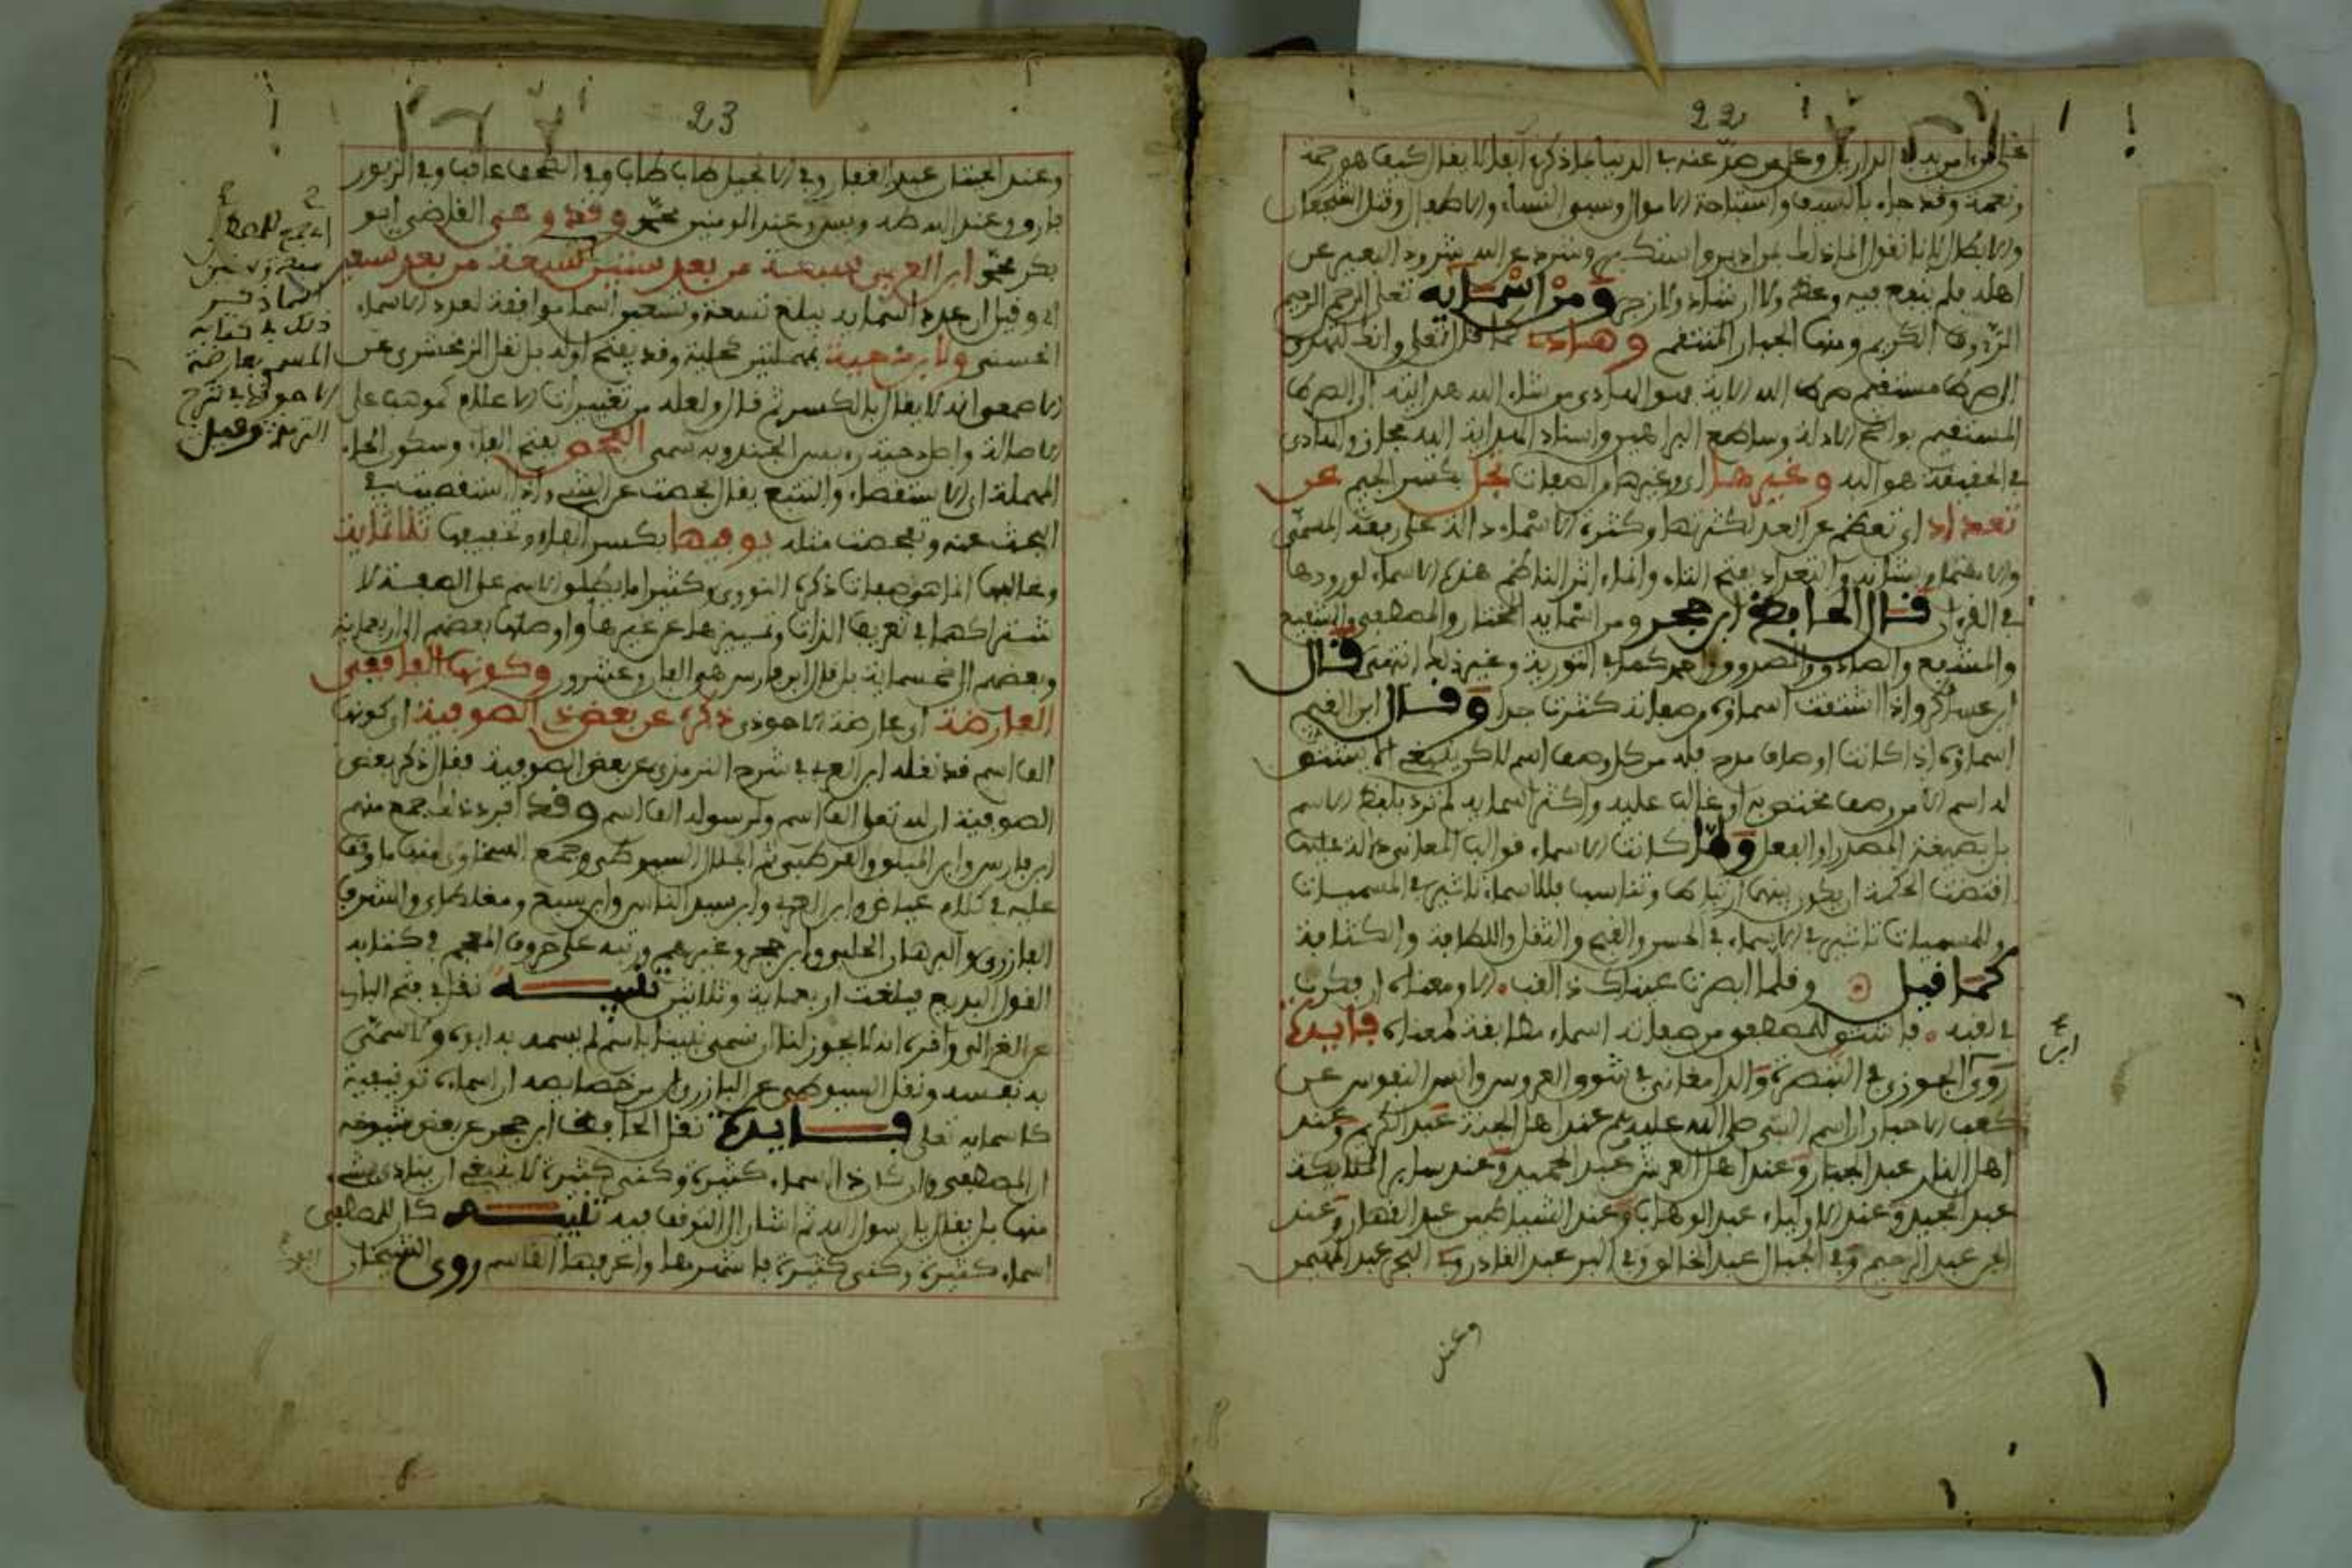 22
ونعمة وقد جاء بالسيف واستباحة الاموال وسبي النساء والاطفال وقتل الشجعان
اهله فلم ينفع فيه وعظ ولا ارشاد ولا زجر ومن اسمآيه تعلى الرحمن الرحيم
الرءوف الكريم ومنها الجبار المنتقم وهاد كما قال تعلى وانك لتهدي
الى صراط مستقيم صراط الله الاية فهو الهادي من شاء الله هدايته الى الصراط
المستقيم بواضح الادلة وساطع البراهين واسناد الهداية اليه مجاز والهادي
في الحقيقة هو الله وغيرها اي وغيرها من الصفات تجل بكسر الجيم عن
تعداد اي تعظم عن العد لكثرتها وكثرة الاسماء دالة على رفعة المسمى
والاهتمام بشانه والتعداد بفتح التاء وانما اثر الناظم هذه الاسماء لورودها
في القرءان قال الحافظ ابن حجر ومن اسمايه المختار والمصطفى والشفيع
والمشفع والصادق والمصدوق واحمد كما في التورية وغير ذلك انتهى قال
ابن عساكر واذا اشتقت اسماؤه من صفاته كثرت جدا وقال ابن القيم
اسماؤه اذا كانت اوصاف مدح فله من كل وصف اسم لكن ينبغي الا يشتق
له اسم الا من وصف مختص به او غالب عليه واكثر اسمايه لم ترد بلفظ الاسم
بل بصيغة المصدر او الفعل ولما كانت الاسماء قوالب المعاني ودالة عليها
اقتضت الحكمة ان يكون بينهما ارتباط وتناسب فللاسماء تاثير في المسميات
وللمسميات تاثير في الاسماء في الحسن والقبح والثقل واللطافة والكثافة
كما قيل وقلما ابصرت عيناك ذا لقب الا ومعناه ان فكرت
في لقبه فاشتق للمصطفى من صفاته اسماء مطابقة لمعناه فايدة
ابن
روى الجوزي في التبصرة والدامغاني في شوق العروس وانس النفوس عن
كعب الاحبار ان اسم النبي صلى الله عليه وسلم عند اهل الجنة عبد الكريم وعند
اهل النار عبد الجبار وعند اهل العرش عبد الحميد وعند ساير الملائكة
عبد المجيد وعند الاولياء عبد الوهاب وعند الشياطين عبد القهار وعند
الجن عبد الرحيم وفي الجبال عبد الخالق وفي البر عبد القادر وفي البحر عبد المهيمن
وعند
23
وعند الحيتان عبد الغفار وفي الانجيل طاب طاب وفي الصحف عاقب وفي الزبور
فاروق وعند الله طه ويس وعند المومنين محمد وقد وعى القاضي ابو
بكر محمد ابن العربي سبعة من بعد ستين تسعة من بعد تسعين
اي وقيل ان عدد اسمايه يبلغ تسعة وتسعين اسما موافقة لعدد الاسماء
الحسنى ولابن دحية بمهملتين كحلية وقد يفتح اوله بل نقل الزمخشري عن
الاصمعي انه لا يقال بالكسر ثم قال ولعله من تغييرات الاعلام كموهب على
الاصالة واصل دحية رءيس الجند وبه سمى الفحص بفتح الفاء وسكون الحاء
المهملة اي الاستقصاء والتتبع يقال فحصت عن الشيء واذا استقصيت في
البحث عنه وتفحصت مثله يوفها بكسر الفاء وتخفيفها ثلثماية
وغالبها انما هو صفات ذكره النووي وكثيرا ما يطلق الاسم على الصفة لا
شتراكهما في تعريف الذات وتمييزها عن غيرها واوصلها بعضهم الى اربعماية
وبعضهم الى خمسماية بل قال ابن فارس هي الفان وعشرون وكونها الفا ففي
العارضة اي عارضة الاحوذي ذكره عن بعض ذي الصوفية اي كونها
الف اسم قد نقله ابن العربي في شرح الترمذي عن بعض الصوفية فقال ذكر بعض
الصوفية ان لله تعلى الف اسم ولرسوله الف اسم وقد افرد ذلك جمع منهم
ابن فارس وابن المبنو والقرطبي ثم الجلال السيوطي وجمع السخاوي منها ما وقف
عليه في كلام عياض وابن العربي وابن سيد الناس وابن سبع ومغلطاي والشرف
البارزي والبرهان الحلبي وابن حجر وغيرهم ورتبه على حروف المعجم في كتابه
القول البديع فبلغت اربعماية وثلاثين تنبيه نقل في فتح الباب
عن الغزالي واقره انه لا يجوز لنا ان نسمي نبينا باسم لم يسمه به ابوه ولا سمى
به نفسه ونقل السيوطي عن البارزي ان من خصايصه ان اسماءه توقيفية
كاسمايه تعلى فايدة نقل الحافظ ابن حجر عن بعض شيوخه
ان المصطفى وان كان ذا اسماء كثيرة وكنى كثيرة لا ينبغي ان ينادى بشيء
منها بل يقال يا رسول الله ثم اشار الى التوقف فيه تنبيه كان للمصطفى
اسماء كثيرة وكنى كثيرة فاشهرها واعرفها القاسم روى الشيخان
ذلك في كتابه
المسمى بعارضة
الاحوذي في شرح
الترمذي وقيل